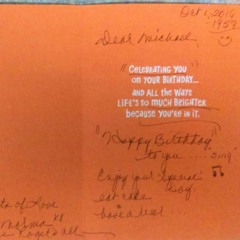 Oct 1, 2016
1953
Dear Michael,
"CELEBRATING YOU
ON YOUR BIRTHDAY...
AND ALL THE WAYS
LIFE'S SO MUCH BRIGHTER
BECAUSE YOU'RE IN IT.
"Happy Birthday"
to you ... sing
Enjoy your special
day
eat cake
have a
of Love